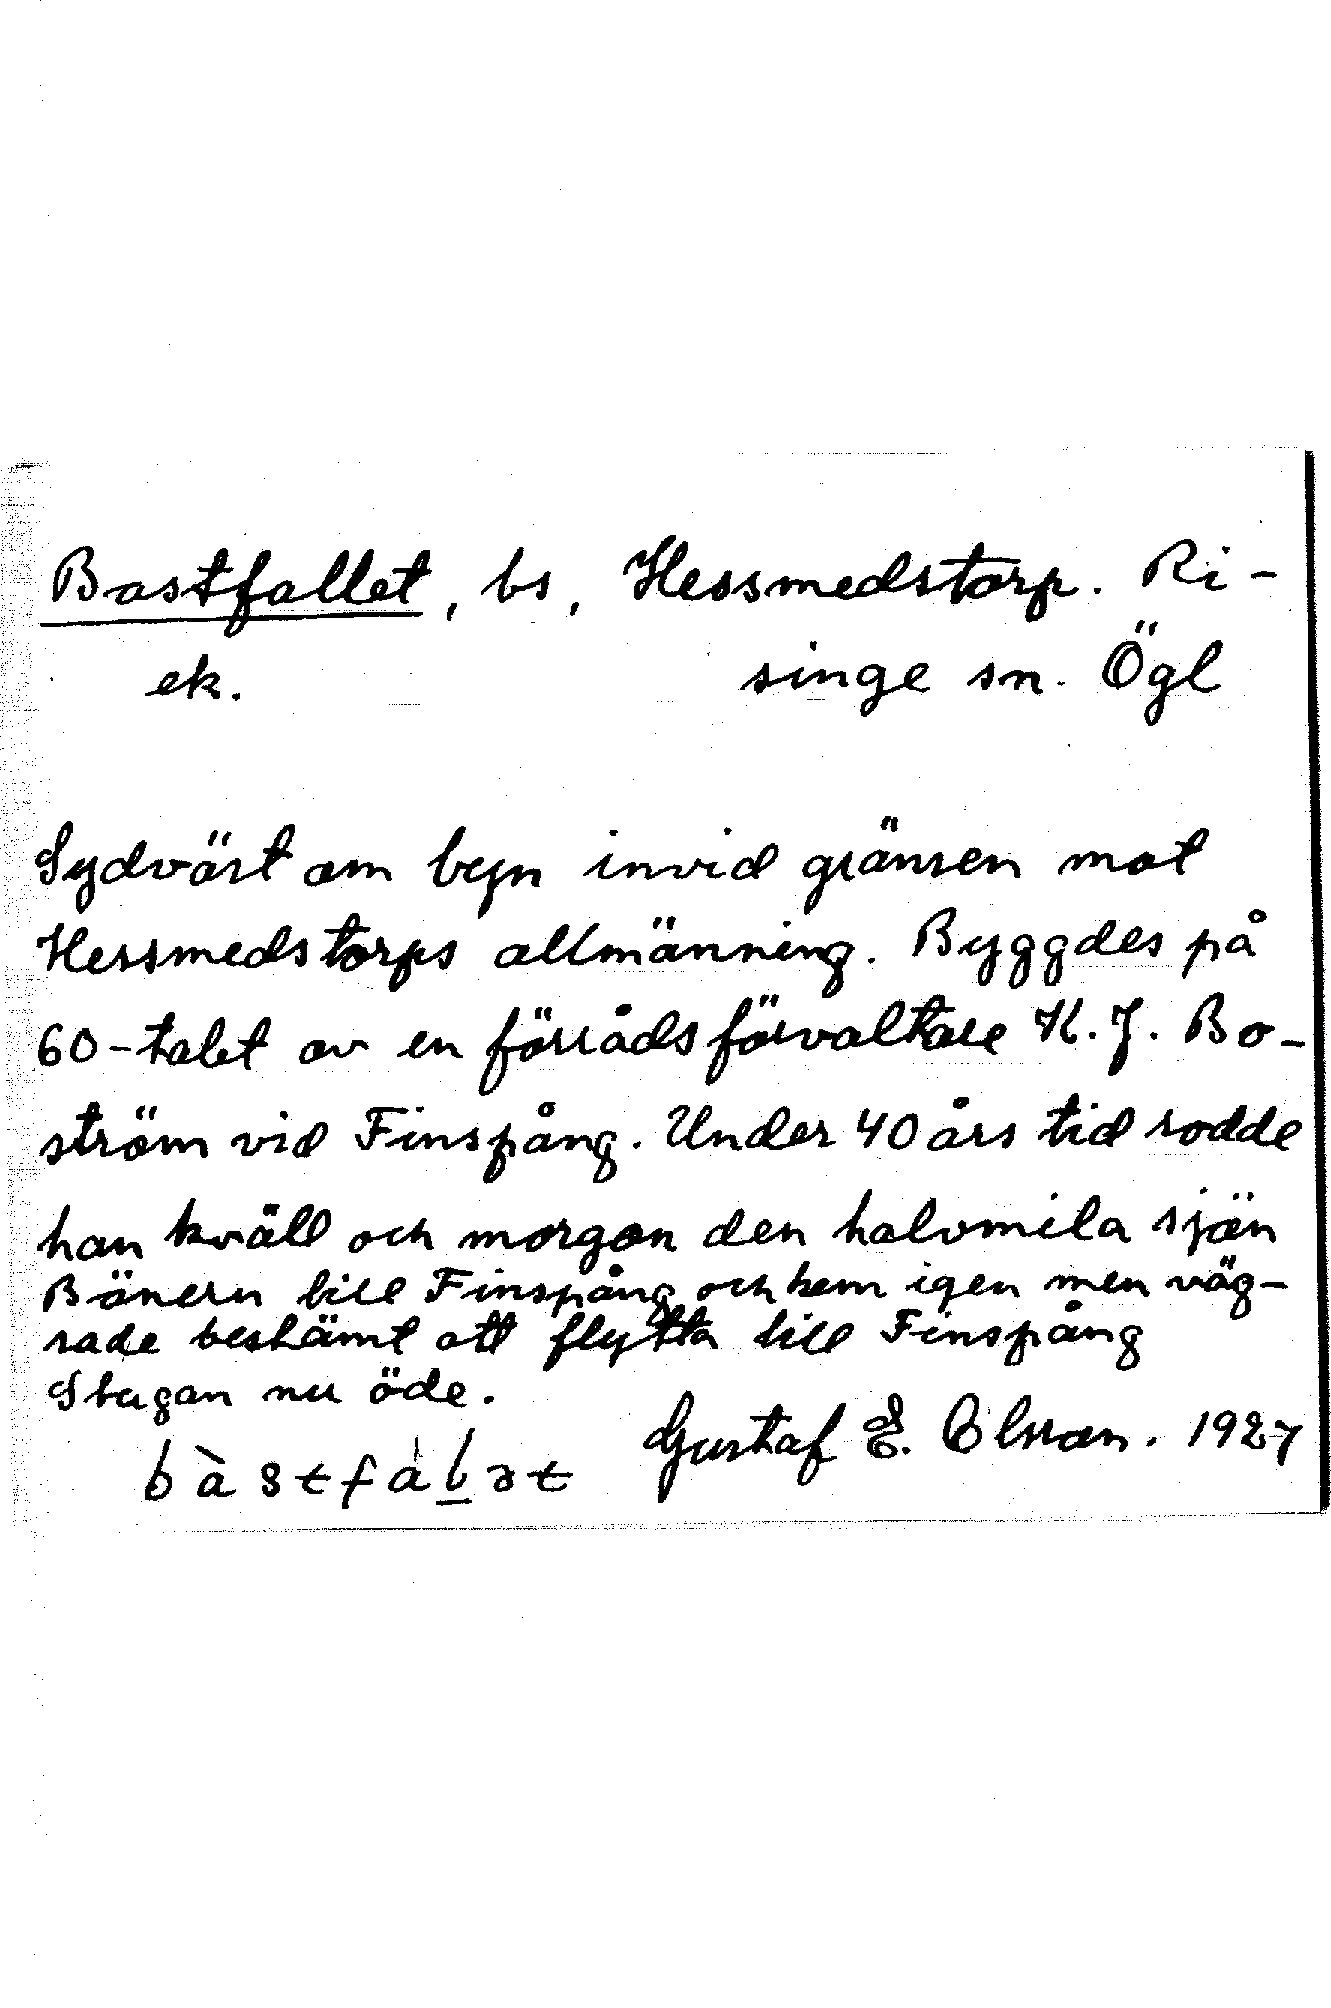 Bastfallet, bs, Hessmedstorp. Ri-
ek. singe sn. Ögl
Sydväst om byn invid gränsen mot
Hessmedstorps allmänning. Byggdes på
60-talet av en förrådsförvaltare K. J. Bo-
ström vid Finspång. Under 40 års tid rodde
han kväll och morgon den halvmila sjön
Bönern till Finspång och hem igen men väg-
rade bestämt att flytta till Finspång
Stugan nu öde.
Gustaf E. Olsson. 1927
bàstfàlət